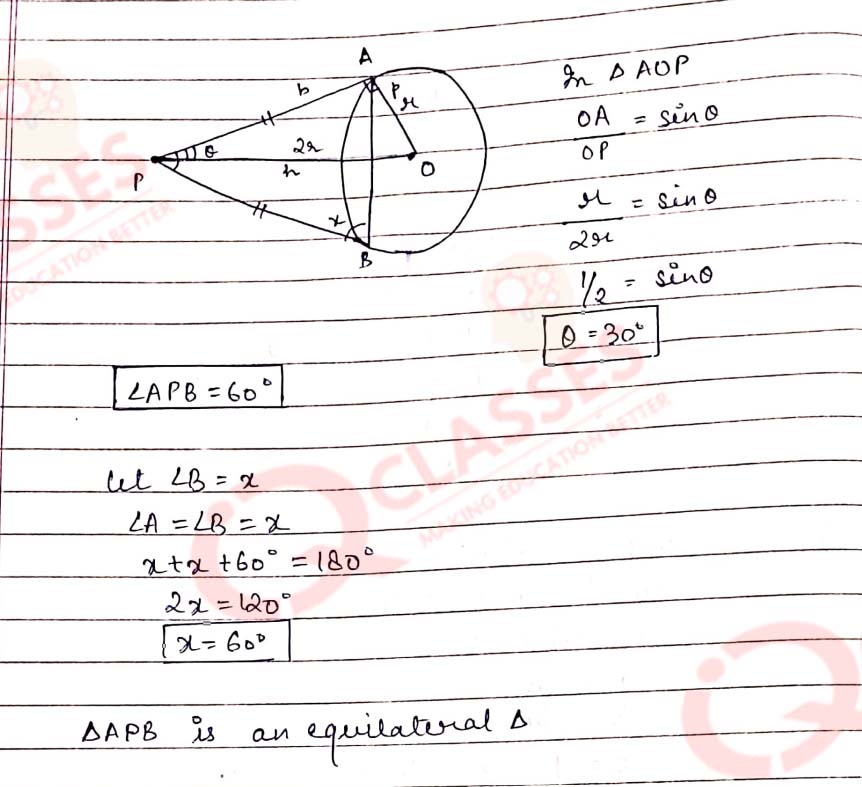 A
b
P
r
θ
2r
h
P
O
x
B
In Δ AOP
OA/OP = sinθ
r/2r = sinθ
1/2 = sinθ
θ = 30°
∠APB = 60°
let ∠B = x
∠A = ∠B = x
x+x+60° = 180°
2x = 120°
x = 60°
ΔAPB is an equilateral Δ
SSES
EDUCATION BETTER
CLASSES
MAKING EDUCATION BETTER